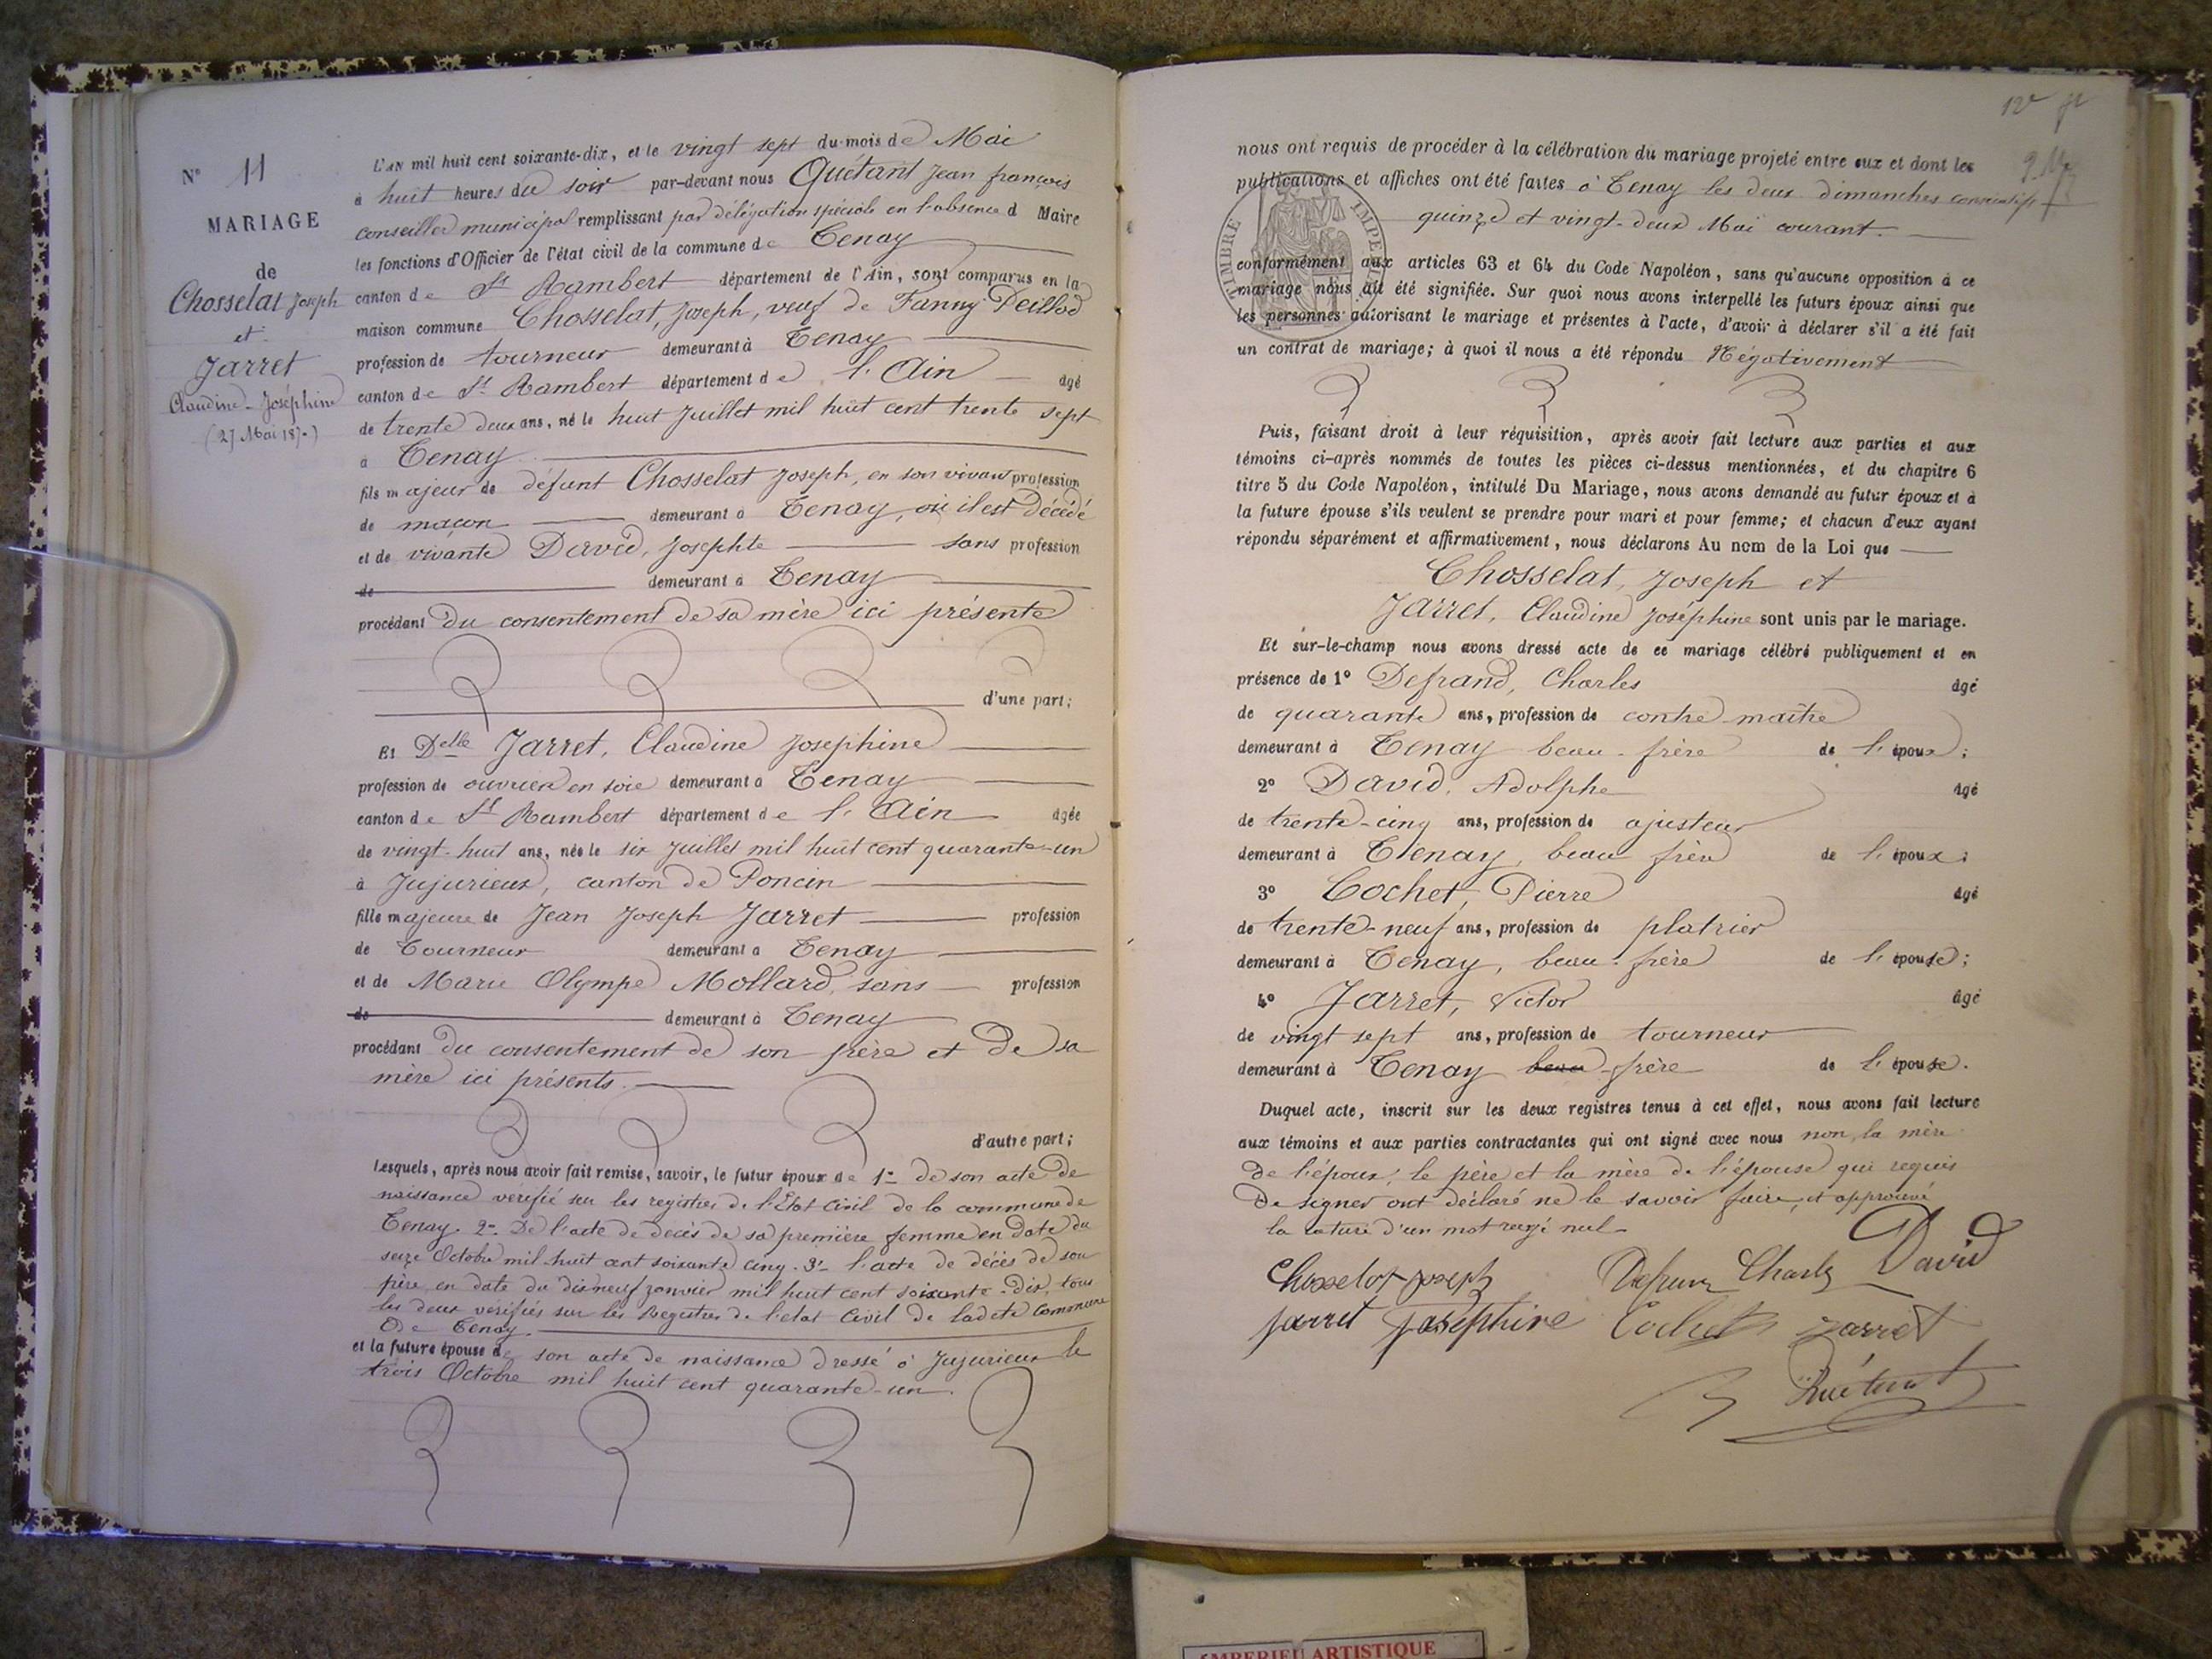 N° 11
MARIAGE
de
Chosselat Joseph
et
Jarret
Claudine-Joséphine
(27 Mai 1870)
L'AN mil huit cent soixante-dix, et le vingt sept du mois de Mai
à huit heures du soir par-devant nous Quétant Jean françois
conseiller municipal remplissant par délégation spéciale en l'absence d Maire
les fonctions d'Officier de l'état civil de la commune de Tenay
canton de St Rambert département de l'Ain, sont comparus en la
maison commune Chosselat, Joseph, veuf de Fanny Peillod
profession de tourneur demeurant à Tenay
canton de St Rambert département de l'Ain âgé
de trente deux ans, né le huit Juillet mil huit cent trente sept
à Tenay
fils majeur de défunt Chosselat Joseph, en son vivant profession
de maçon demeurant à Tenay, où il est Décédé
et de vivante David, Josephte sans profession
de demeurant à Tenay
procédant du consentement de sa mère ici présente
d'une part;
Et Delle Jarret, Claudine Josephine
profession de ouvrière en soie demeurant à Tenay
canton de St Rambert département de l'Ain âgée
de vingt-huit ans, née le six Juillet mil huit cent quarante-un
à Jujurieux, canton de Poncin
fille majeure de Jean Joseph Jarret profession
de Tourneur demeurant à Tenay
et de Marie Olympe Mollard, sans profession
de demeurant à Tenay
procédant du consentement de son père et de sa
mère ici présents.
d'autre part;
Lesquels, après nous avoir fait remise, savoir, le futur époux de 1° de son acte de
naissance vérifié sur les registres de l'Etat Civil de la commune de
Tenay. 2° De l'acte de décès de sa première femme en Date du
seize Octobre mil huit cent soixante cinq. 3° l'acte de décès de son
père en date du dix neuf janvier mil huit cent soixante-dix, tous
les deux vérifiés sur les Registres de l'etat Civil de ladite Commune
de Tenay.
et la future épouse de son acte de naissance dressé à Jujurieux le
trois Octobre mil huit cent quarante-un.
nous ont requis de procéder à la célébration du mariage projeté entre eux et dont les
publications et affiches ont été faites à Tenay les deux dimanches consécutifs
quinze et vingt-deux Mai courant.
TIMBRE IMPÉRIAL
conformément aux articles 63 et 64 du Code Napoléon, sans qu'aucune opposition à ce
mariage nous ait été signifiée. Sur quoi nous avons interpellé les futurs époux ainsi que
les personnes autorisant le mariage et présentes à l'acte, d'avoir à déclarer s'il a été fait
un contrat de mariage; à quoi il nous a été répondu Négativement
Puis, faisant droit à leur réquisition, après avoir fait lecture aux parties et aux
témoins ci-après nommés de toutes les pièces ci-dessus mentionnées, et du chapitre 6
titre 5 du Code Napoléon, intitulé Du Mariage, nous avons demandé au futur époux et à
la future épouse s'ils veulent se prendre pour mari et pour femme; et chacun d'eux ayant
répondu séparément et affirmativement, nous déclarons Au nom de la Loi que
Chosselat, Joseph et
Jarret, Claudine Joséphine sont unis par le mariage.
Et sur-le-champ nous avons dressé acte de ce mariage célébré publiquement et en
présence de 1° Defrand, Charles âgé
de quarante ans, profession de contre-maître
demeurant à Tenay beau-frère de l'époux;
2° David, Adolphe âgé
de trente-cinq ans, profession de ajusteur
demeurant à Tenay, beau frère de l'époux;
3° Cochet, Pierre âgé
de trente-neuf ans, profession de platrier
demeurant à Tenay, beau-frère de l'épouse;
4° Jarret, Victor âgé
de vingt sept ans, profession de tourneur
demeurant à Tenay beau-frère de l'épouse.
Duquel acte, inscrit sur les deux registres tenus à cet effet, nous avons fait lecture
aux témoins et aux parties contractantes qui ont signé avec nous non, la mère
de l'époux, le père et la mère de l'épouse qui requis
de signer ont déclaré ne le savoir faire, et approuvé
la rature d'un mot rayé nul
Chosselat Joseph Charles David
Jarret Joséphine Cochet Jarret
Quétant
AMBERIEU ARTISTIQUE